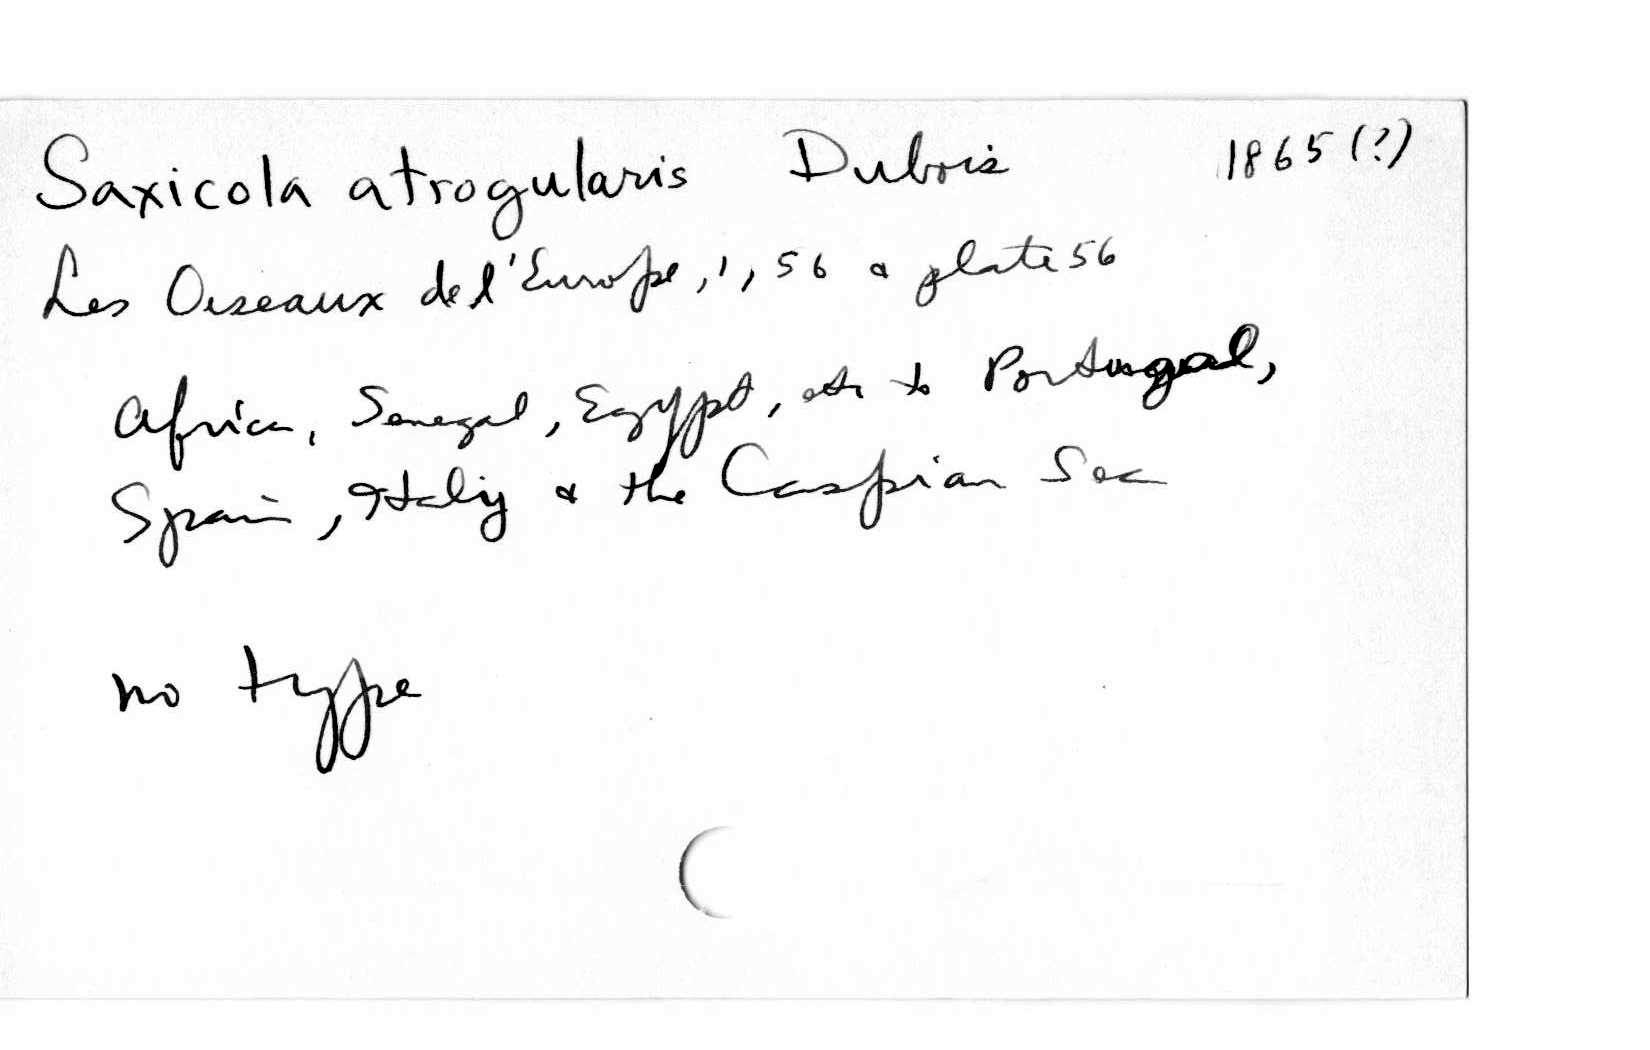 Saxicola atrogularis Dubois 1865 (?)
Les Oiseaux de l'Europe, 1, 56 & plate 56
Africa, Senegal, Egypt, etc to Portugal,
Spain, Italy & the Caspian Sea
no type